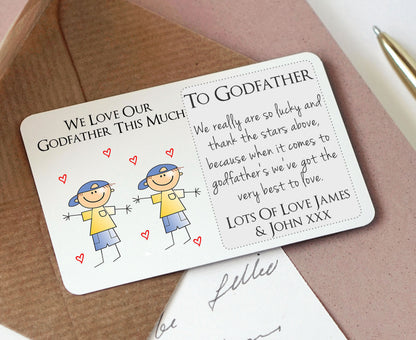 We Love Our
Godfather This Much
To Godfather
We really are so lucky and
thank the stars above,
because when it comes to
godfather's we've got the
very best to love.
Lots Of Love James
& John xxx